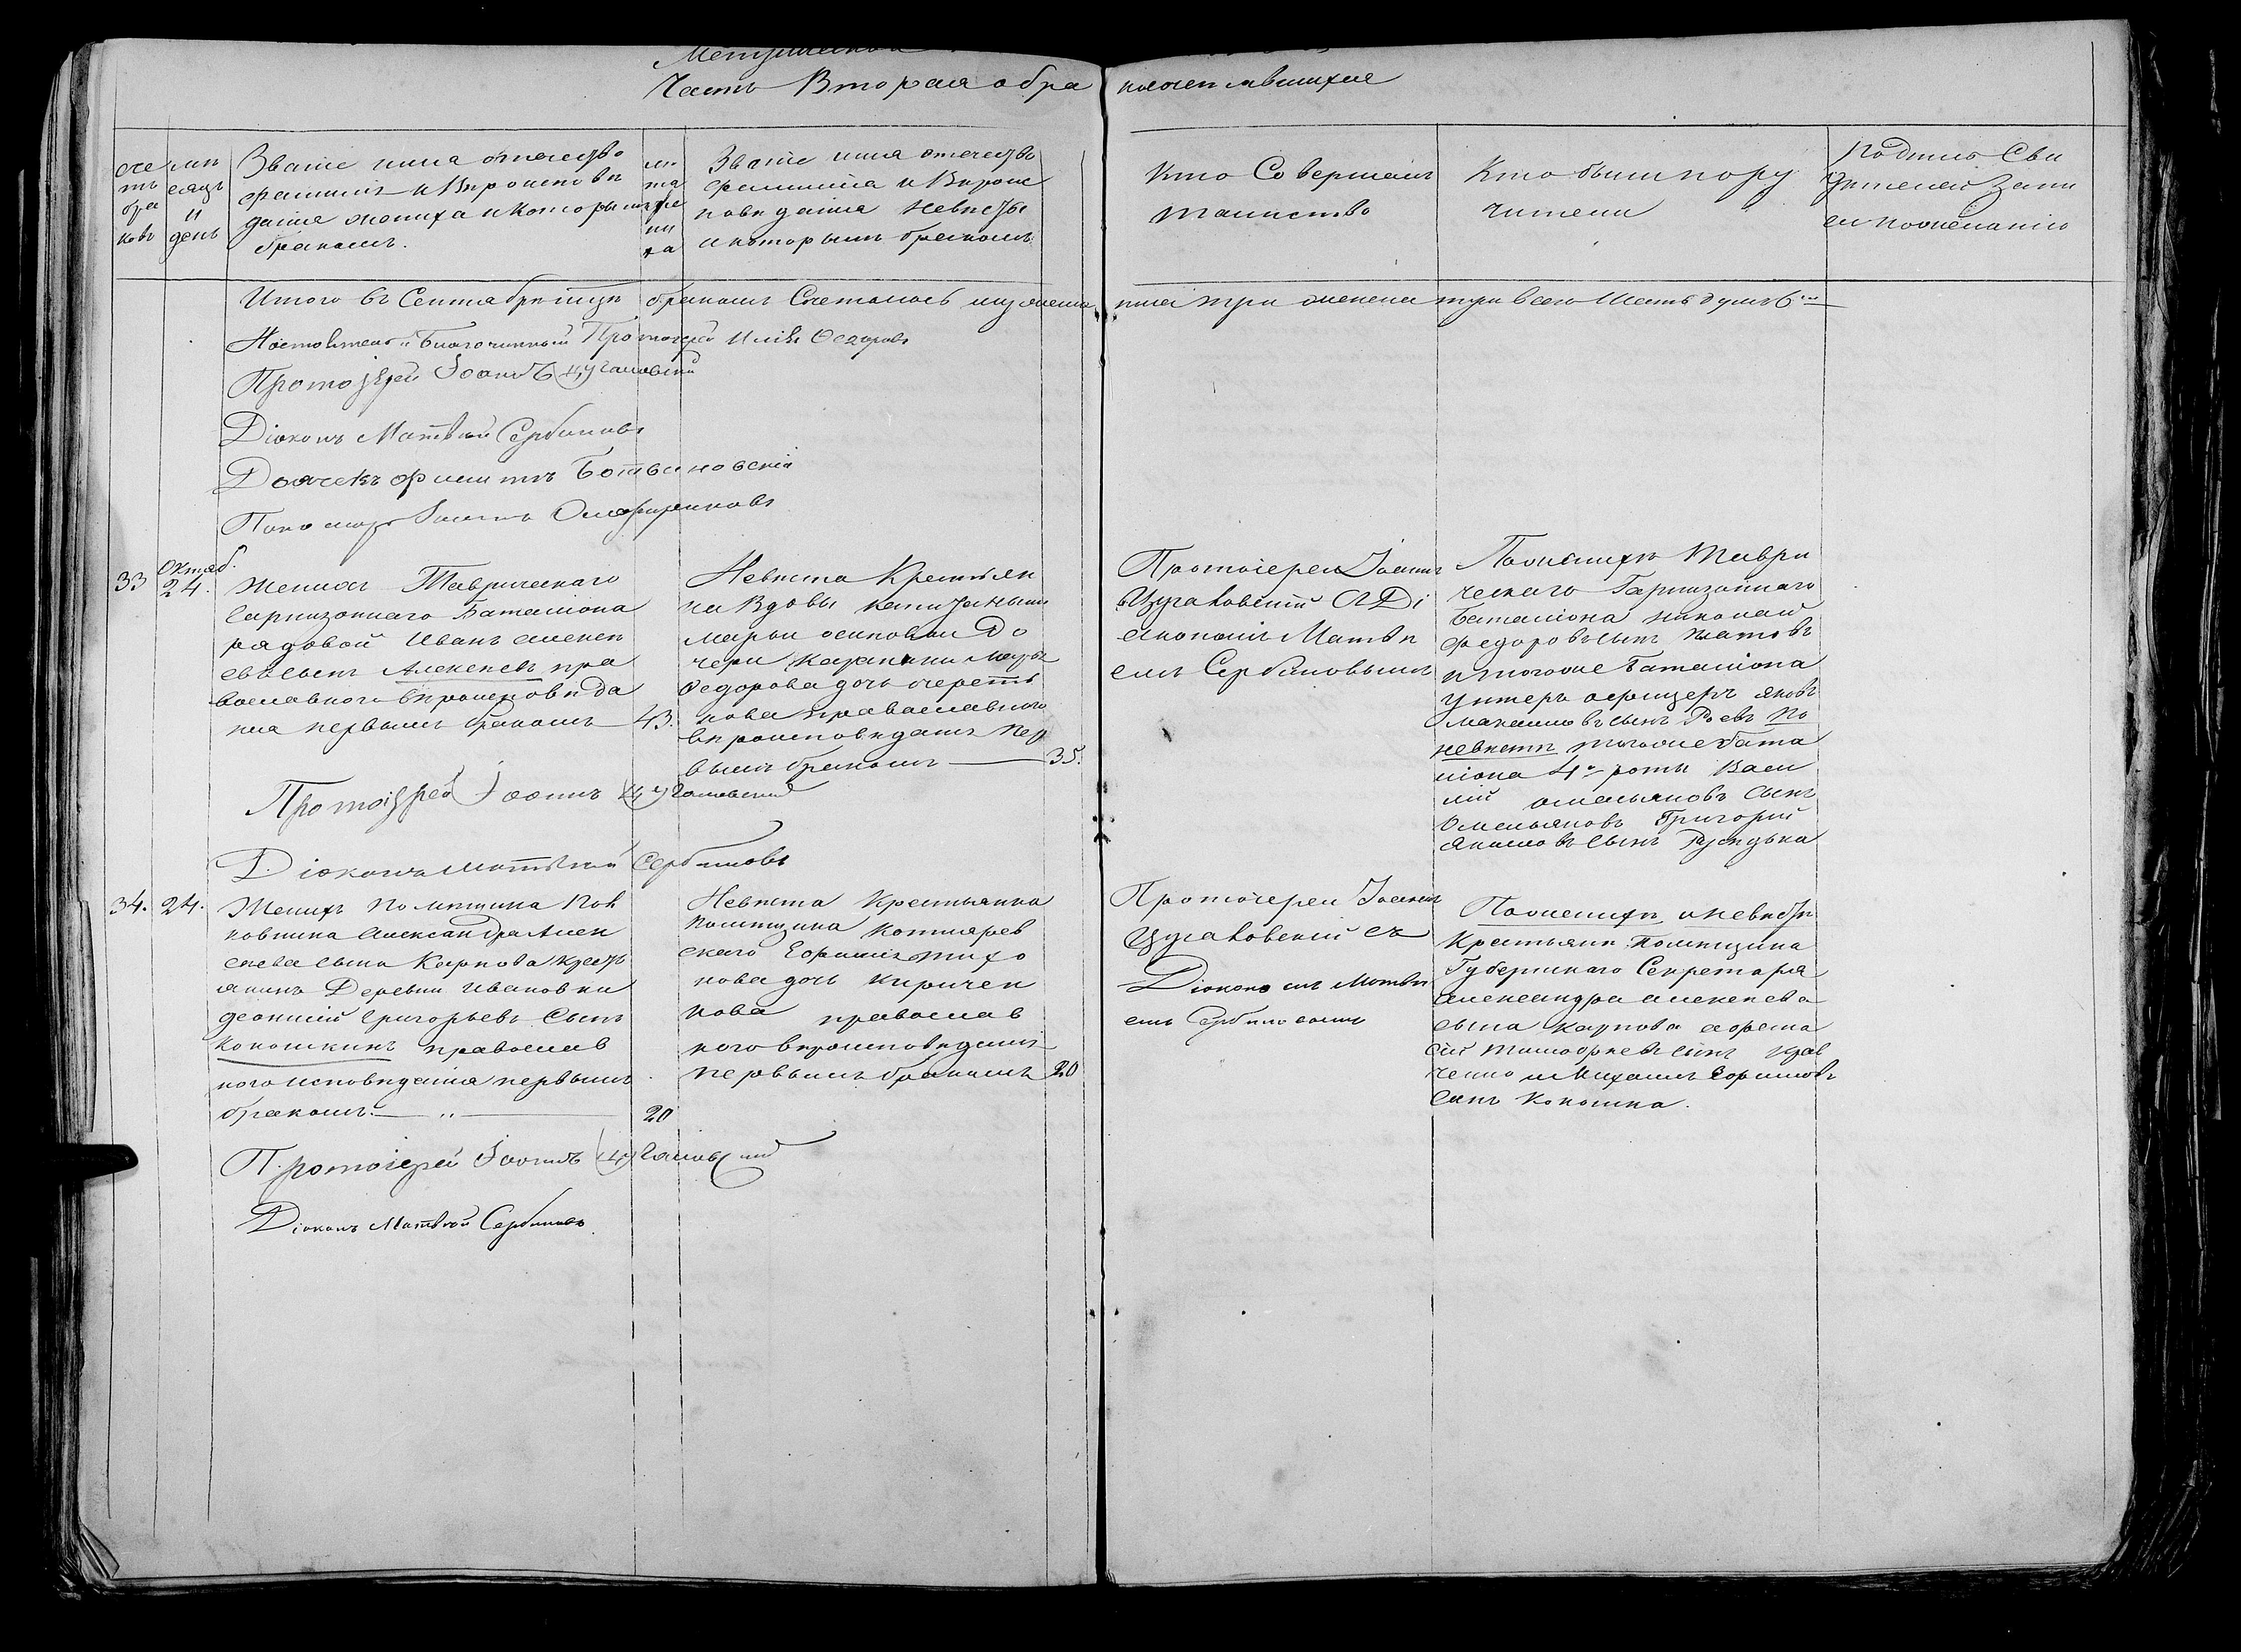 Часть Вторая о бра косочетавшихся
сче
тъ
бра
ковъ
мѣ
сяцъ
и
день
Званіе имя отечество
фамилія и Вѣроисповѣ
даніе жениха и которымъ
бракомъ.
лѣ
та
же
ни
ха
Званіе имя отечество
фамилія и Вѣрои
повѣданія невѣсты
и которымъ бракомъ
Кто Совершалъ
таинство
Кто были пору
чители
Подпись Сви
дѣтелей Запи
си пожеланію
Итого въ Сентябрѣ мцѣ бракомъ Счеталось мужеска пола три женска три всего Шесть душъ 6
Настоятель Благочинный Протоіерей Илія Федоровъ
Протоіерей Іоаннъ Цугаловскій
Діаконъ Матвѣй Сербиновъ
Дьячекъ Филиппъ Ботвиновскій
Пономарь
Октяб.
33 24.
Женихъ Таврическаго
Гарнизоннаго Баталіона
рядовой Иванъ Алексѣ
евъ сынъ Алексѣевъ пра
вославного вѣроисповѣда
нія первымъ бракомъ 43.
Невѣста Крестьян
ка Вдовы
Марьи Осиповой до
чери
Федорова дочь
кова православного
вѣроисповѣданія пер
вымъ бракомъ 35.
Протоіерей Іоаннъ
Цугаловскій с Ді
акономъ Матвѣ
емъ Сербиновымъ
По женихѣ Таври
ческаго Гарнизоннаго
Баталіона Николай
Федоровъ сынъ
тогоже Баталіона
Унтеръ офицеръ Яковъ
Максимовъ сынъ Роевъ по
невѣстѣ тогоже бата
ліона 4й роты Васи
лій Омельяновъ Сынъ
Омельяновъ Григорій
Якимовъ Сынъ
Протоіерей Іоаннъ Цугаловскій
Діаконъ Матвѣй Сербиновъ
34. 24.
Женихъ Помѣщика Пол
ковника Александра Алек
сѣева сына Карпова крест
янинъ Деревни Ивановки
Григорьевъ Сынъ
Коношкинъ православ
ного исповѣданія первымъ
бракомъ. 20
Невѣста Крестьянка
Помѣщика Котляров
скаго
нова дочь Киричен
кова православ
ного вѣроисповѣданія
первымъ бракомъ 20
Протоіерей Іоаннъ
Цугаловскій съ
Діакономъ Матвѣ
емъ Сербиновымъ
По женихѣ и невѣстѣ
Крестьяне Помѣщика
Губернскаго Секретаря
Александра Алексѣева
сына Карпова Афана
сій Тимофѣевъ сынъ Крав
ченко и Михаилъ Ефимовъ
Сынъ Коношка.
Протоіерей Іоаннъ Цугаловскій
Діаконъ Матвѣй Сербиновъ.